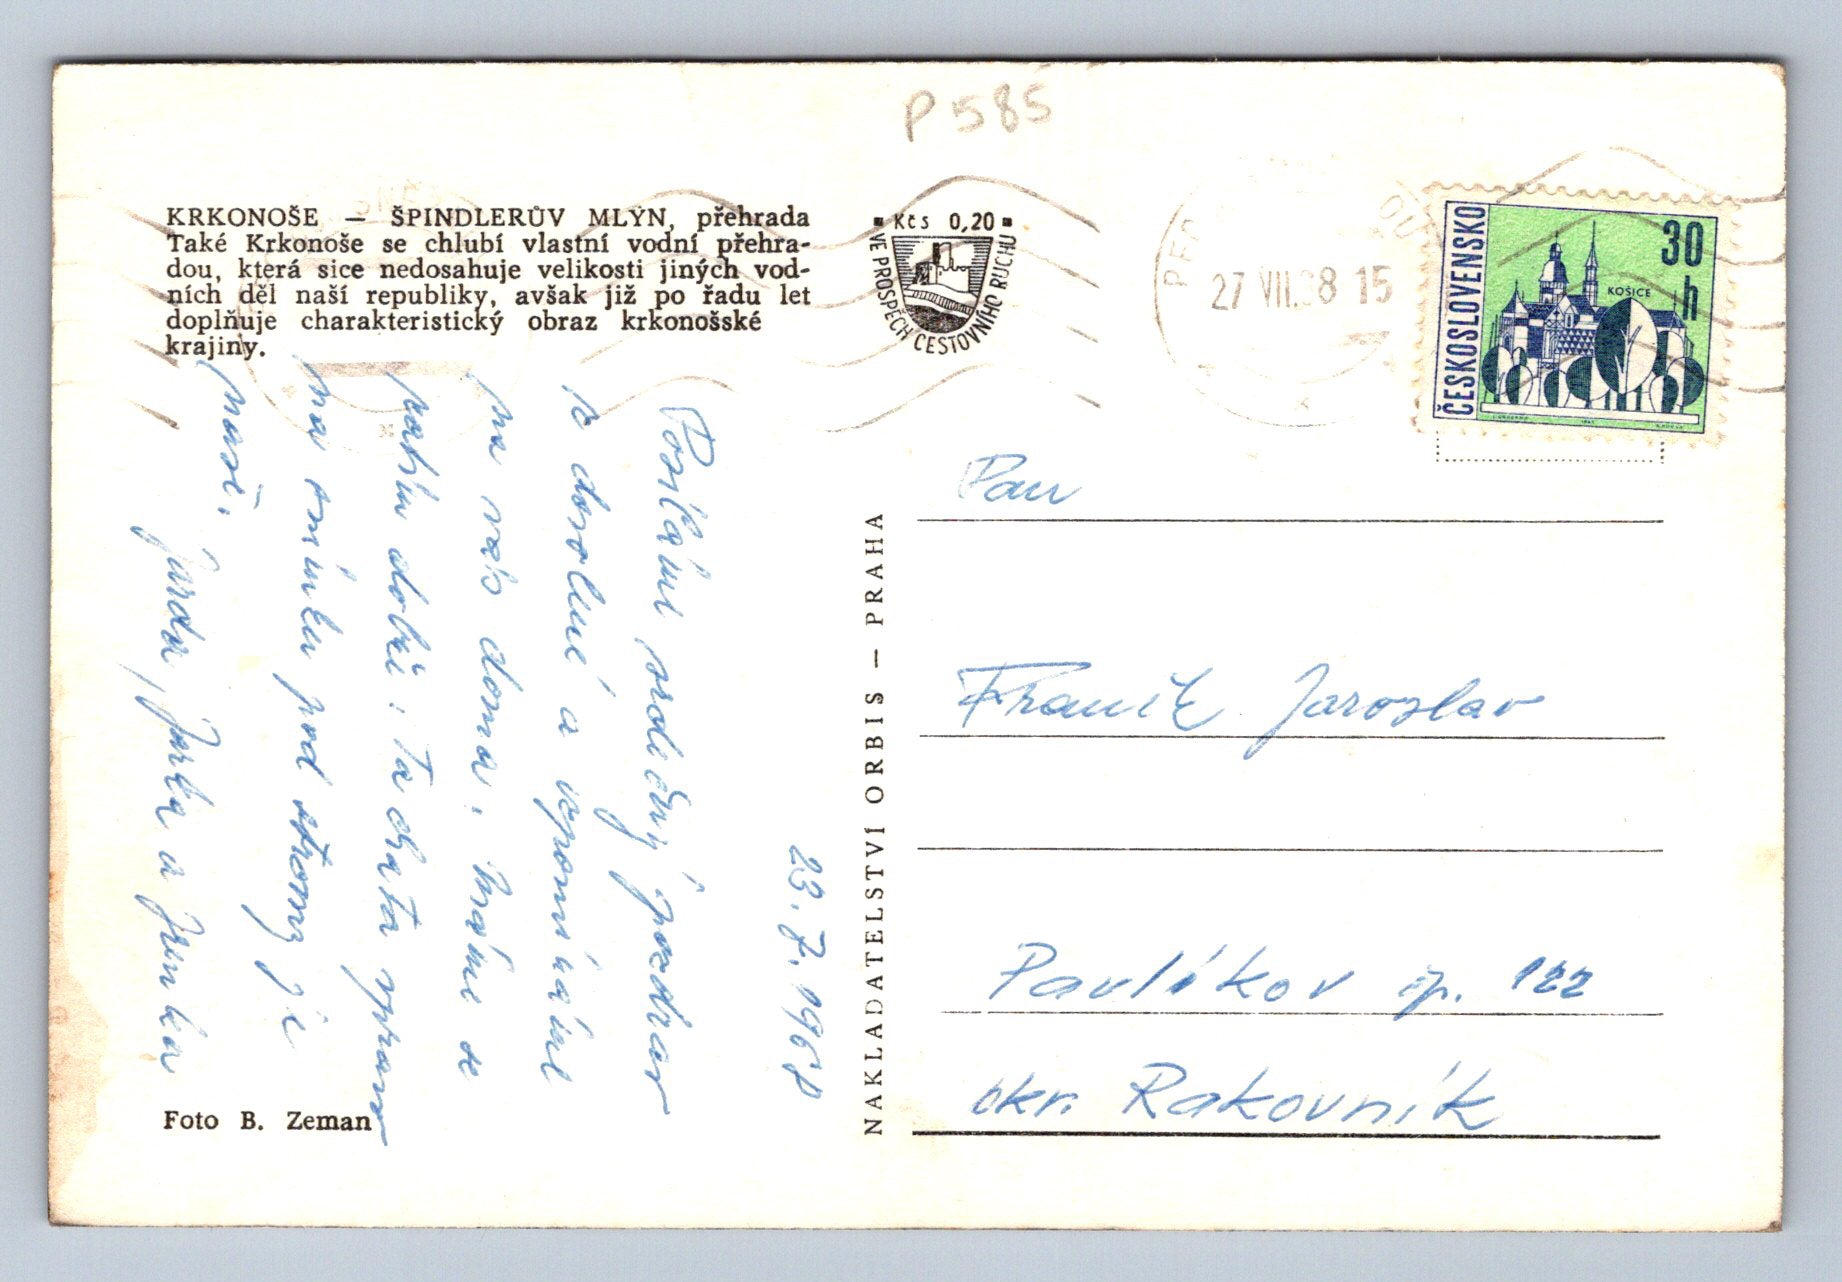 P 585
KRKONOŠE — ŠPINDLERŮV MLÝN, přehrada
Také Krkonoše se chlubí vlastní vodní přehra-
dou, která sice nedosahuje velikosti jiných vod-
ních děl naší republiky, avšak již po řadu let
doplňuje charakteristický obraz krkonošské
krajiny.
Kčs 0,20
VE PROSPĚCH CESTOVNÍHO RUCHU
27 VII. 68 15
ČESKOSLOVENSKO
30 h
KOŠICE
23. 7. 1968
Posíláme srdečný pozdrav
z dovolené a vzpomínáme
na vás doma. Máme se
zatím dobře. Ta chata vpravo
na snímku pod stromy je
naše.
Jarda, Jarka a
Foto B. Zeman
NAKLADATELSTVÍ ORBIS — PRAHA
Pan
Franěk Jaroslav
Pavlíkov čp. 122
okr. Rakovník